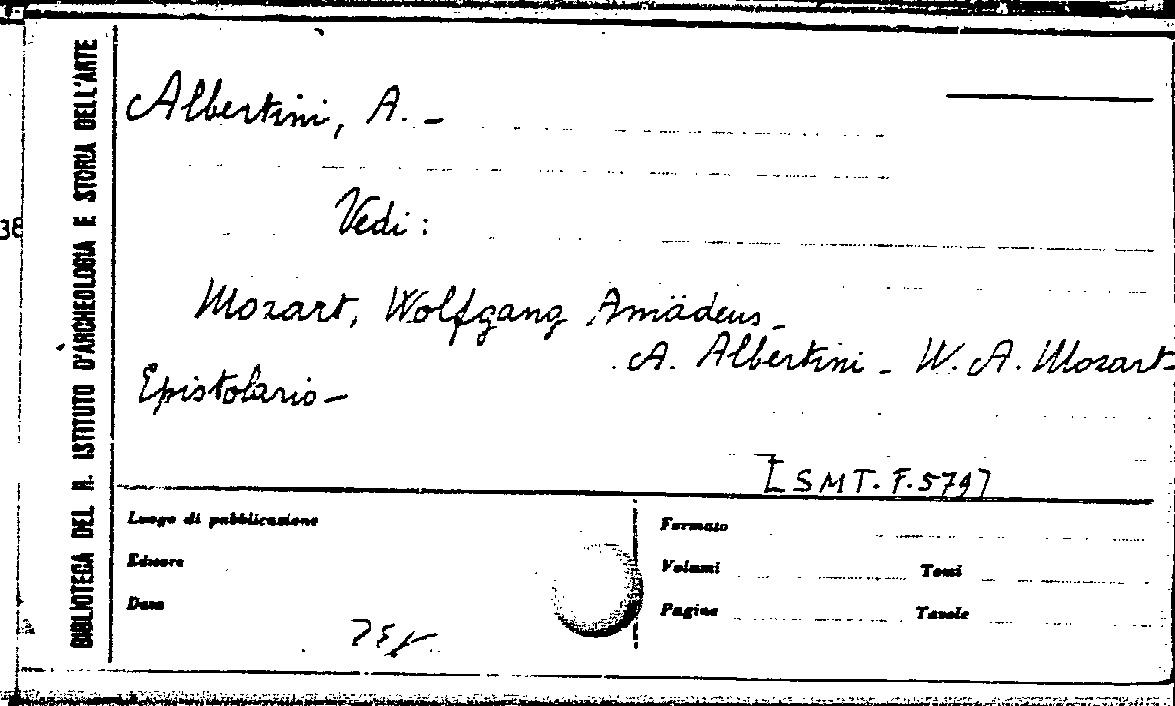 BIBLIOTECA DEL R. ISTITUTO D'ARCHEOLOGIA E STORIA DELL'ARTE
38
Albertini, A. -
Vedi:
Mozart, Wolfgang Amädeus -
A. Albertini - W. A. Mozart-
Epistolario -
[SMT. F. 579]
Luogo di pubblicazione
Editore
Data
Formato
Volumi Tomi
Pagine Tavole